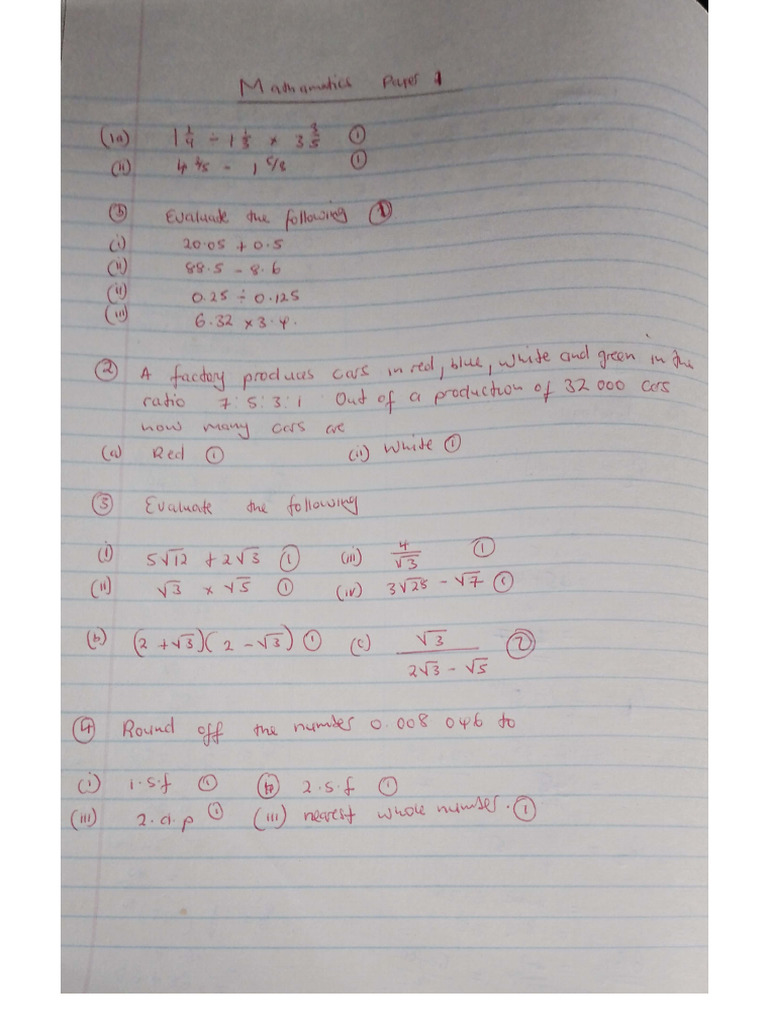 Mathematics Paper 1
(1a) 1 1/4 ÷ 1 1/3 × 3 3/5 ①
(ii) 4 4/5 - 1 5/8 ①
ⓑ Evaluate the following ①
(i) 20.05 + 0.5
(ii) 88.5 - 8.6
(ii) 0.25 ÷ 0.125
(iii) 6.32 × 3.4.
② A factory produces cars in red, blue, white and green in the
ratio 7:5:3:1 Out of a production of 32 000 cars
how many cars are
(a) Red ① (ii) White ①
③ Evaluate the following
(i) 5√12 + 2√3 ① (iii) 4/√3 ①
(ii) √3 × √5 ① (iv) 3√28 - √7 ①
(b) (2 + √3)(2 - √3) ① (c) √3/(2√3 - √5) ②
④ Round off the number 0.008 046 to
(i) 1.s.f ① 2.s.f ①
(iii) 2.d.p ① (iii) nearest whole number. ①